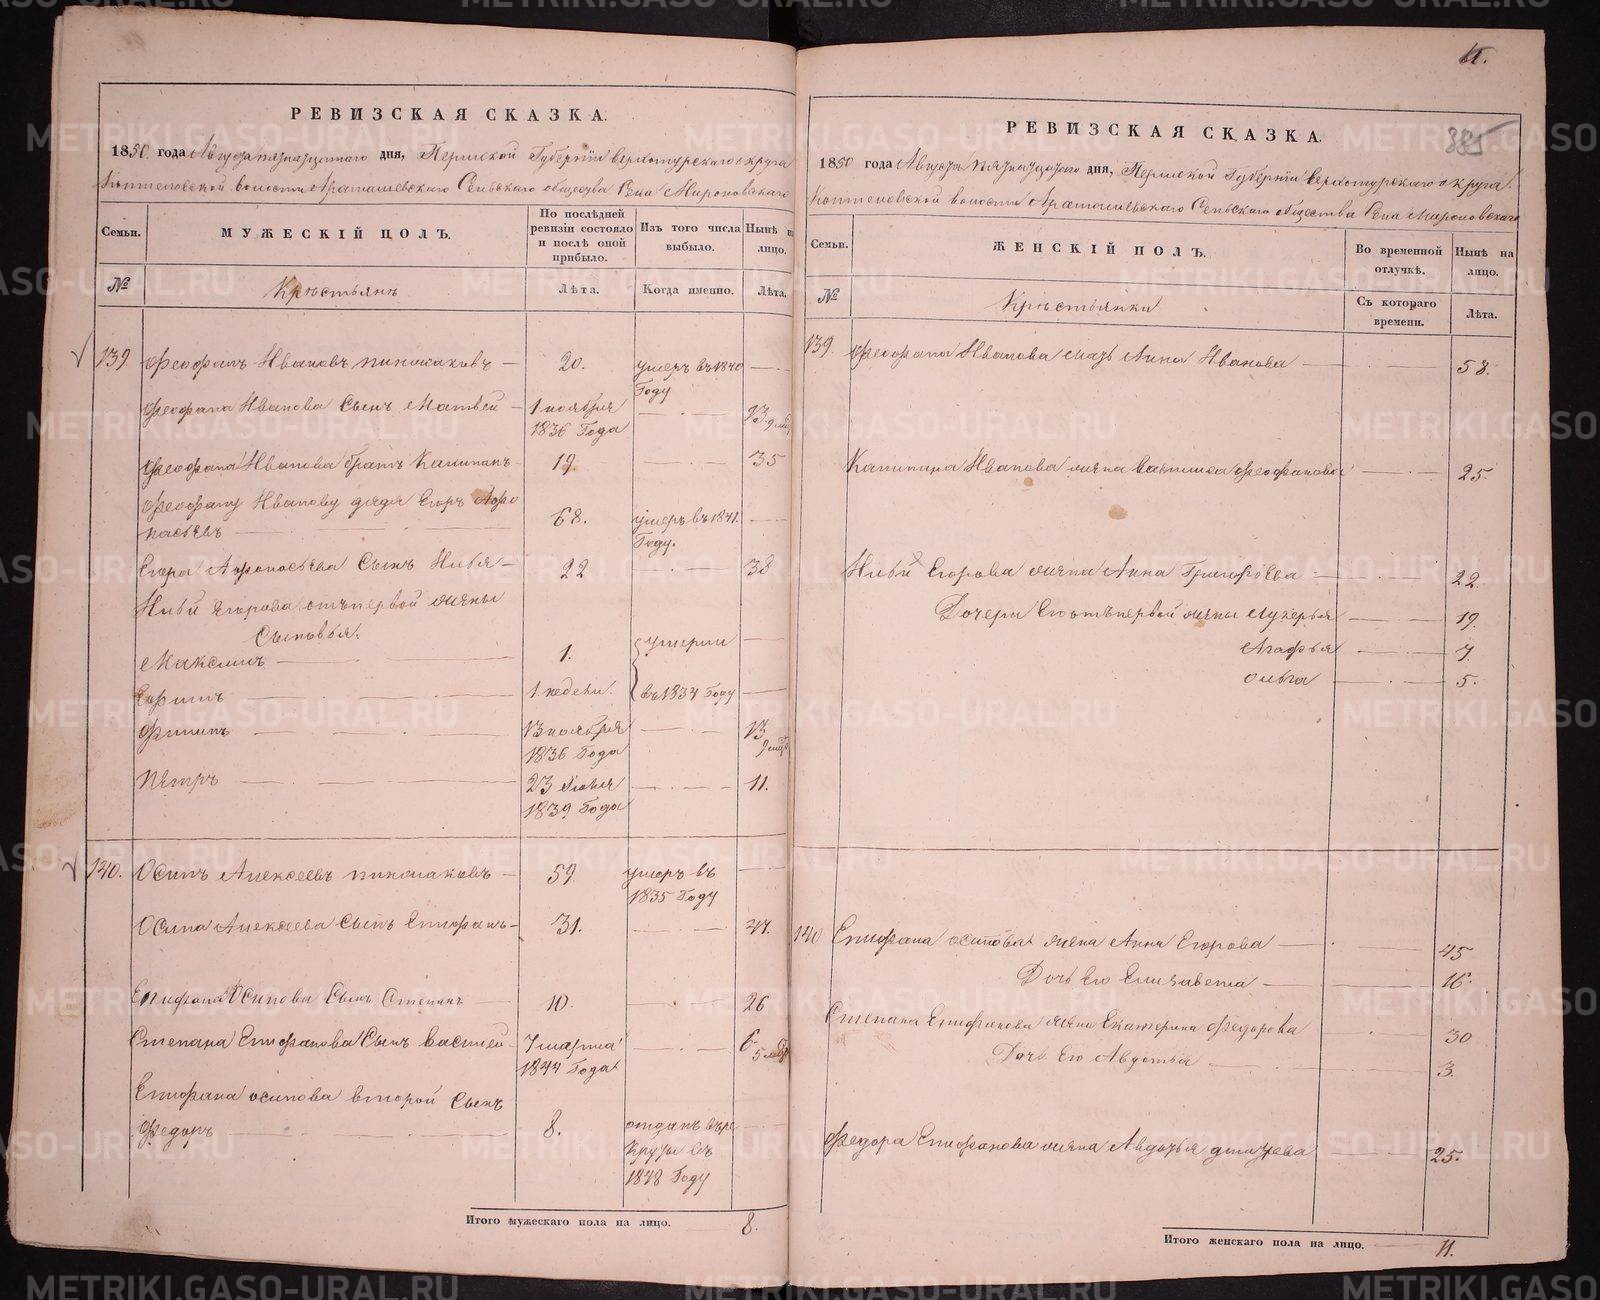 РЕВИЗСКАЯ СКАЗКА.
1850 года Августа пятнатцатого дня, Пермской Губернїи верхотурскаго округа
Коптеловской волости Арамашевскаго Сельскаго общества Села Мироновскаго
Семьи.
МУЖЕСКІЙ ПОЛЪ.
По послѣдней ревизіи состояло и послѣ оной прибыло.
Изъ того числа выбыло.
Нынѣ на лицо.
№
Крѣстьянъ
Лѣта.
Когда именно.
Лѣта.
139. Феофанъ Ивановъ 20. умеръ въ 1840
Году
Феофана Иванова Сынъ Матвей 1 ноября 13. 9 мѣс
1836 Года
Феофана Иванова братъ Калинанъ 19. 35
Феофану Иванову дядя Егоръ Афо
насьевъ 68. умеръ въ 1841.
Году.
Егора Афонасьева Сынъ Илья 22 38
Ильи Егорова отъ первой жены
Сыновья.
Максимъ 1. умерли
Ефимъ 1 недели. въ 1834 Году
Филипъ 13 ноября 13 9 мѣс
1836 Года
Пётръ 23 Июня 11.
1839 Года
140. Осипъ Алексеевъ 59. умеръ въ
1835 Году
Осипа Алексеева Сынъ Епифанъ 31. 47.
Епифана Осипова Сынъ Степанъ 10. 26
Степана Епифанова Сынъ василей 7 марта 6 5 мѣс
1844 Года
Епифана осипова второй Сынъ
Федоръ 8. отданъ въ ре
круты въ
1848 Году
Итого мужескаго пола на лицо. 8.
11.
385
РЕВИЗСКАЯ СКАЗКА.
1850 года Августа пятнатцатаго дня, Пермской Губернїи верхотурскаго округа.
Коптеловской волости Арамашевскаго Сельскаго общества Села Мироновскаго
Семьи.
ЖЕНСКІЙ ПОЛЪ.
Во временной отлучкѣ.
Нынѣ на лицо.
№
Крѣстьянки
Съ котораго времени.
Лѣта.
139. Феофана Иванова мать Анна Иванова 58.
Калинина Иванова жена васылиса феофанова 25.
Ильи Егорова жена Анна Григорьева 22.
Дочери Его отъ первой жены Лукерья 19.
Агафья 7.
Ольга 5.
140 Епифана осипова жена Анна Егорова 45
Дочь Его Елизавета 16.
Степана Епифанова жена Екатерина Федорова 30
Дочь Его Авдотья 3.
Федора Епифанова жена Авдотья 25.
Итого женскаго пола на лицо. 11.
METRIKI.GASO-URAL.RU